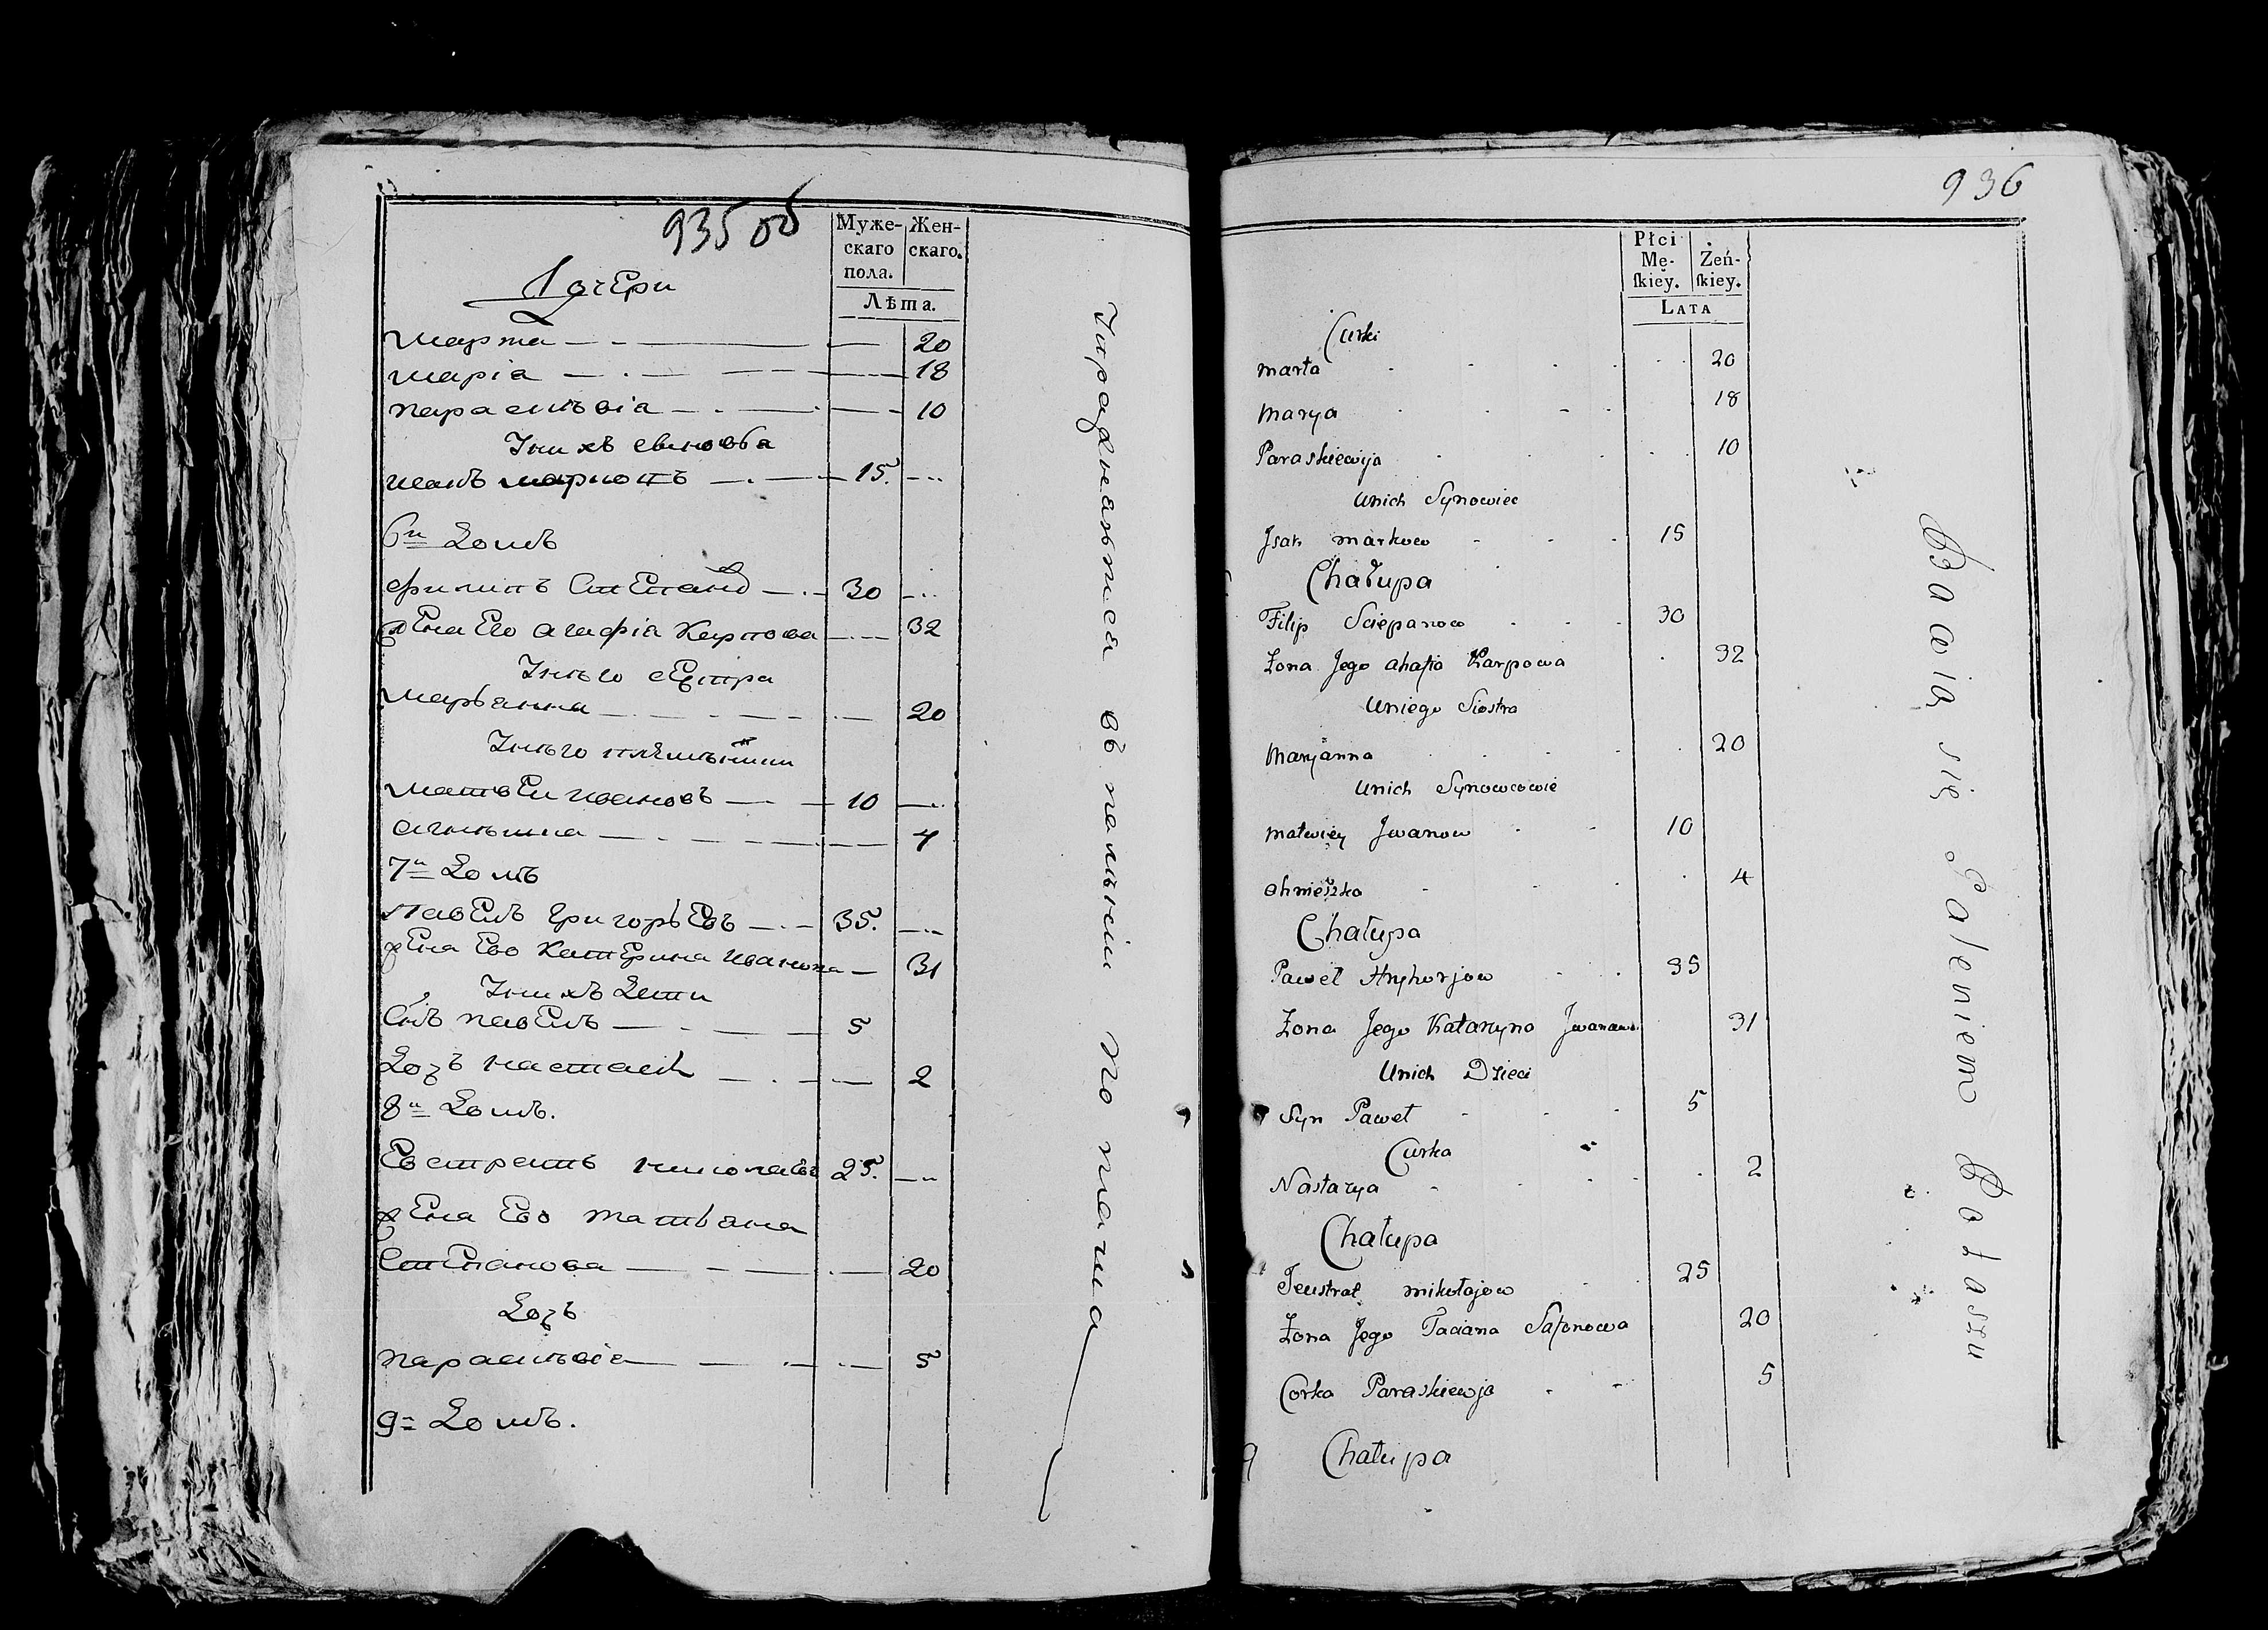 935 об
Муже-
скаго
пола.
Жен-
скаго.
Лѣта.
Дочери
марта 20
марiа 18
параскѣвiа 10
15.
6й Домъ
филипъ Степанов 30
жена Его агафiа Карпова 32
Унего сестра
марьанна 20
матвей ивановъ 10
4
7й Домъ
павелъ григорьевъ 35.
жена Ево Катерина иванова 31
Унихъ дети
Снъ павелъ 5
2
8й Домъ.
Евстратъ николаевъ 25.
жена Ево татьяна
Степанова 20
параскѣвiа 5
9й Домъ.
936
Płci
Mę-
ſkiey.
Żeń-
ſkiey.
LATA
Curki
marta 20
Marya 18
Paraskiewija 10
Unich Synowiec
Jsak markow 15
Chałupa
Filip Sciepanow 30
Żona Jego ahafia Karpowa 32
Uniego Siostra
Maryanna 20
Unich Synowcowie
matwiey Jwanow 10
ahnieszka 4
Chałupa
Paweł Hryhorjow 35
Żona Jego Katarzyna Jwanawa 31
Unich Dzieci
Syn Paweł 5
Curka
Nastazya 2
Chałupa
Jeustrat mikołajow 25
Żona Jego Taciana Safonowa 20
Corka Paraskiewja 5
9 Chałupa
Bawią się Paleniem Potaszu